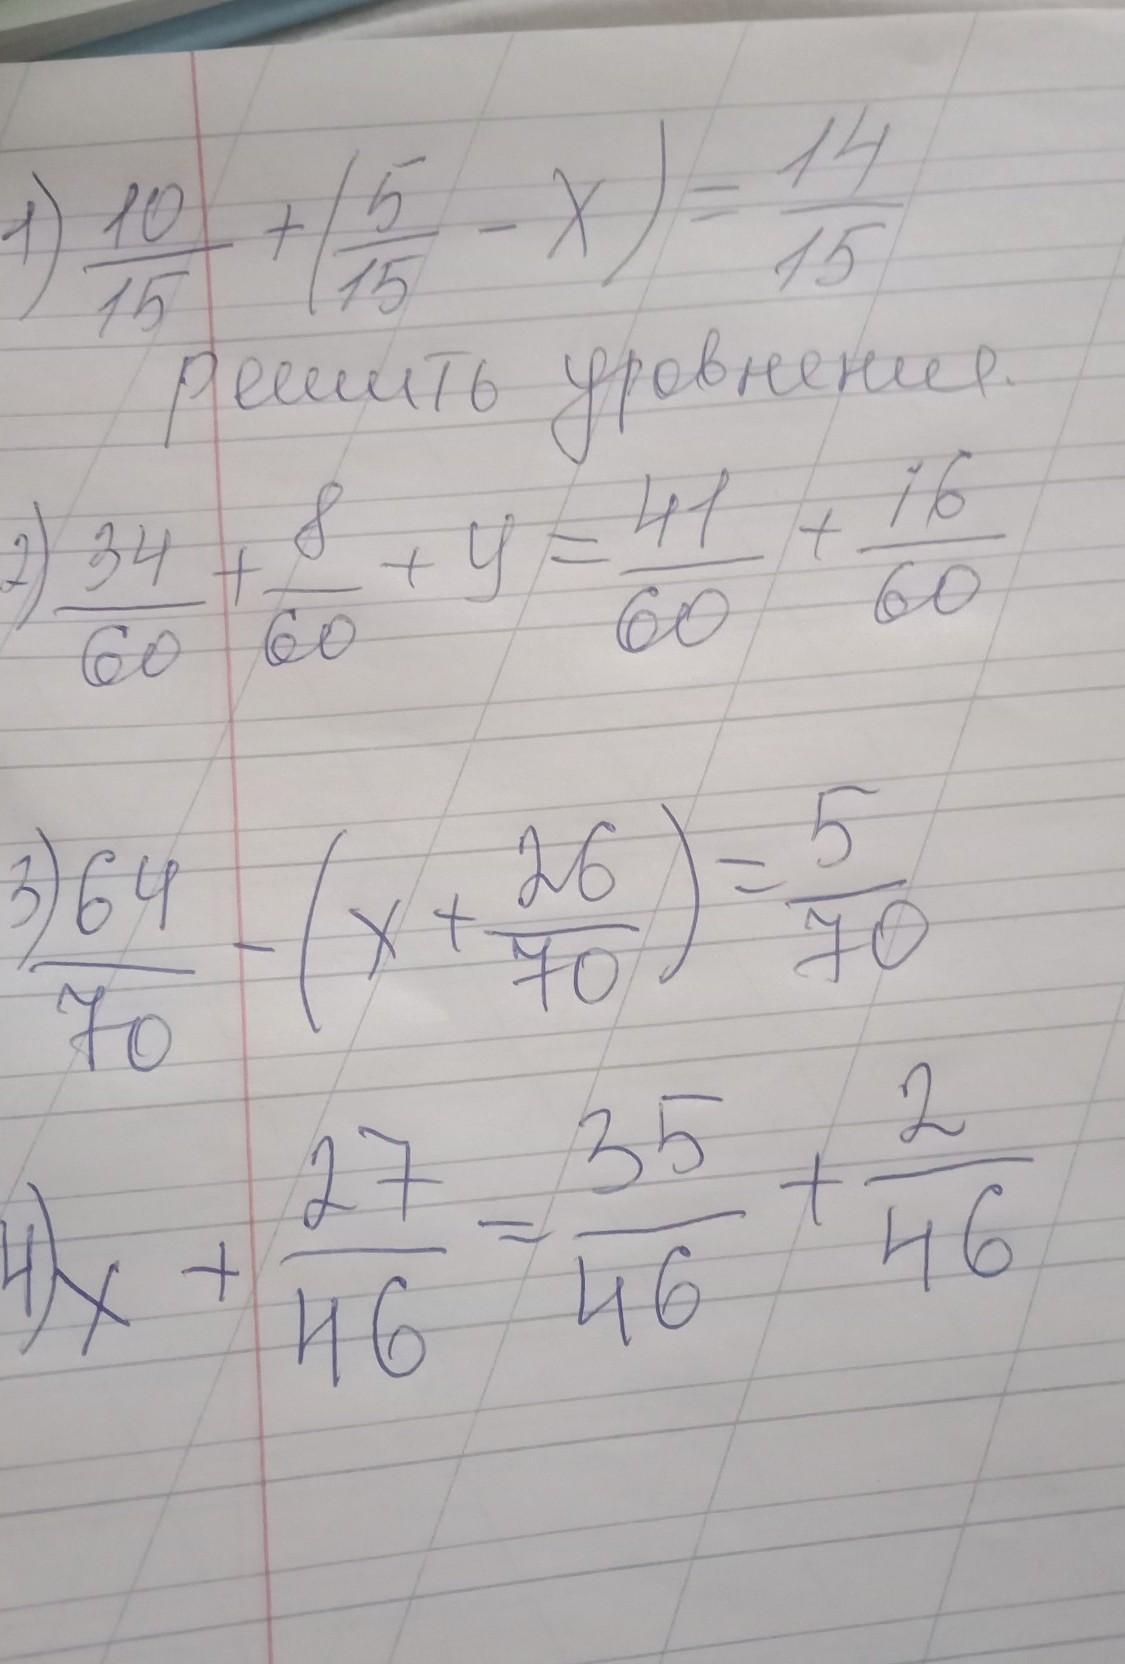 1) 10/15 + (5/15 - x) = 14/15
решить уровнение.
2) 34/60 + 8/60 + y = 41/60 + 16/60
3) 64/70 - (x + 26/70) = 5/70
4) x + 27/46 = 35/46 + 2/46